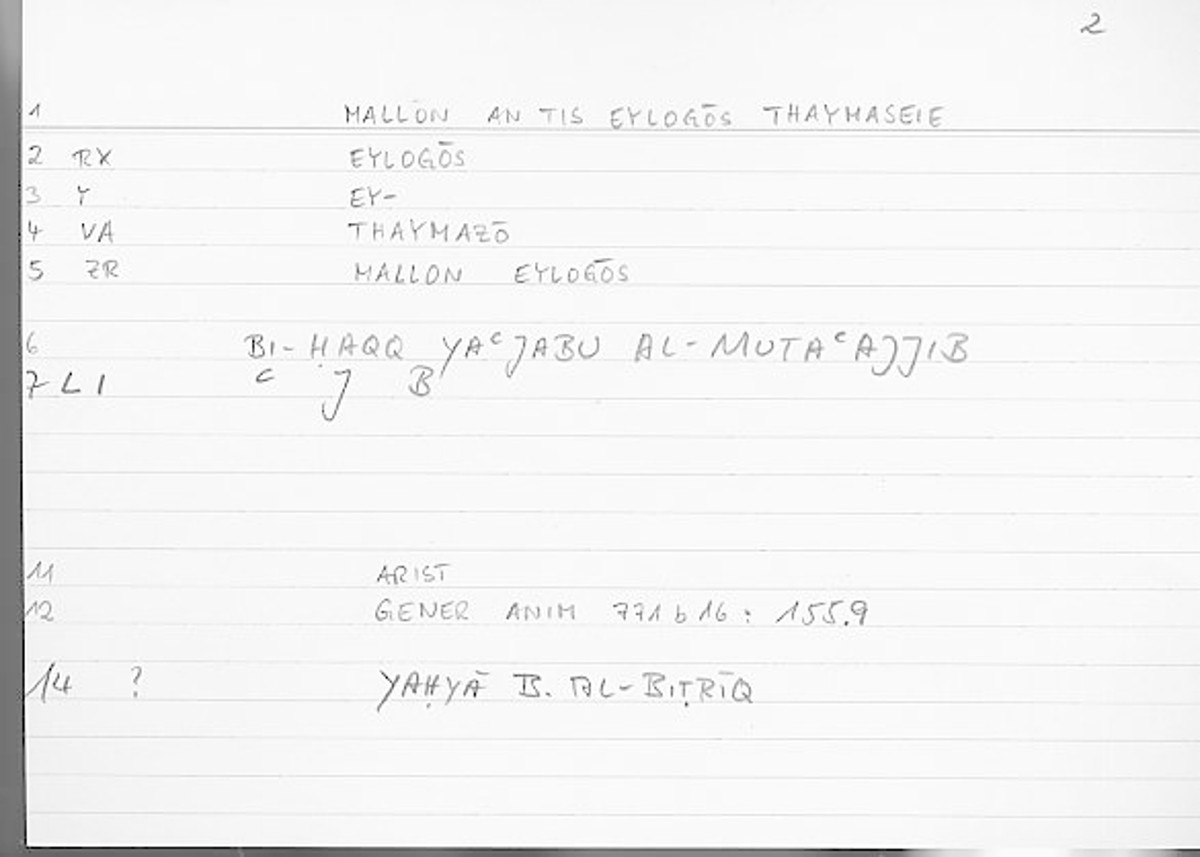 2
1 MALLON AN TIS EYLOGŌS THAYMASEIE
2 RX EYLOGŌS
3 Y EY-
4 VA THAYMAZŌ
5 ZR MALLON EYLOGŌS
6 BI-ḤAQQ YAᶜJABU AL-MUTAᶜAJJIB
7 LI ᶜ J B
11 ARIST
12 GENER ANIM 771 b 16: 155.9
14 ? YAḤYĀ B. AL-BIṬRĪQ